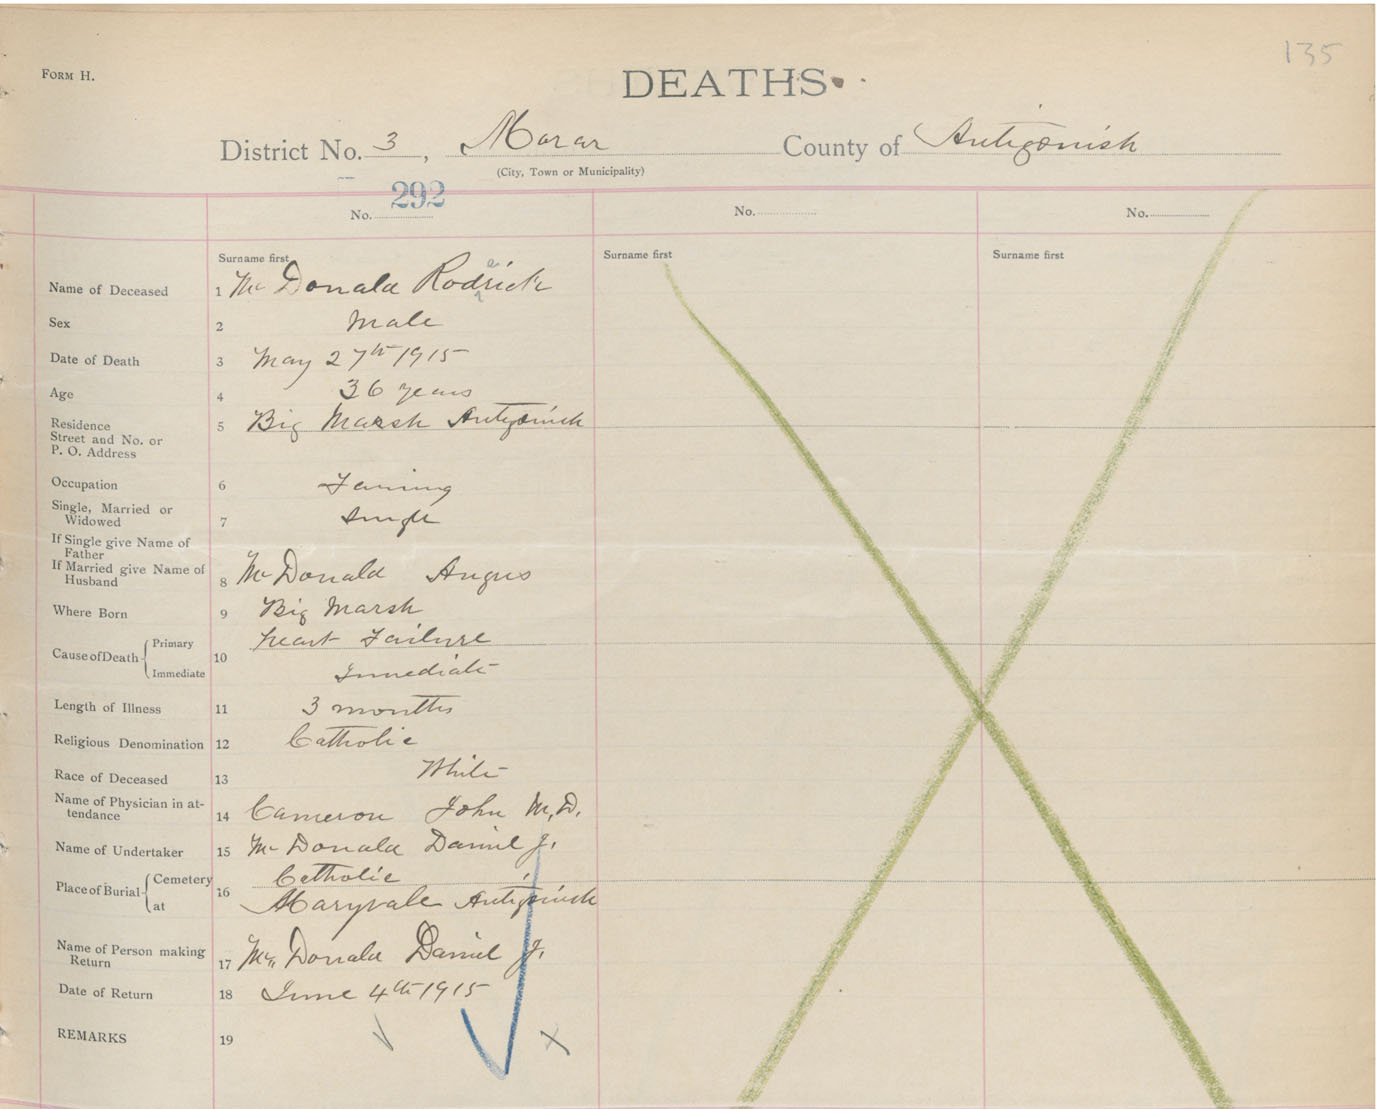 135
FORM H.
DEATHS
District No. 3, Morar County of Antigonish
(City, Town or Municipality)
No. 292 No. No.
Surname first Surname first Surname first
Name of Deceased 1 Mc Donald Rodrick
Sex 2 Male
Date of Death 3 May 27th 1915
Age 4 36 years
Residence
Street and No. or
P. O. Address 5 Big Marsh Antigonish
Occupation 6 Farming
Single, Married or
Widowed 7 Single
If Single give Name of
Father
If Married give Name of
Husband 8 Mc Donald Angus
Where Born 9 Big Marsh
Cause of Death Primary 10 heart Failure
Immediate Immediate
Length of Illness 11 3 months
Religious Denomination 12 Catholic
Race of Deceased 13 White
Name of Physician in at-
tendance 14 Cameron John M.D.
Name of Undertaker 15 Mc Donald Daniel J.
Place of Burial Cemetery 16 Catholic
at Maryvale Antigonish
Name of Person making
Return 17 Mc Donald Daniel J.
Date of Return 18 June 4th 1915
REMARKS 19